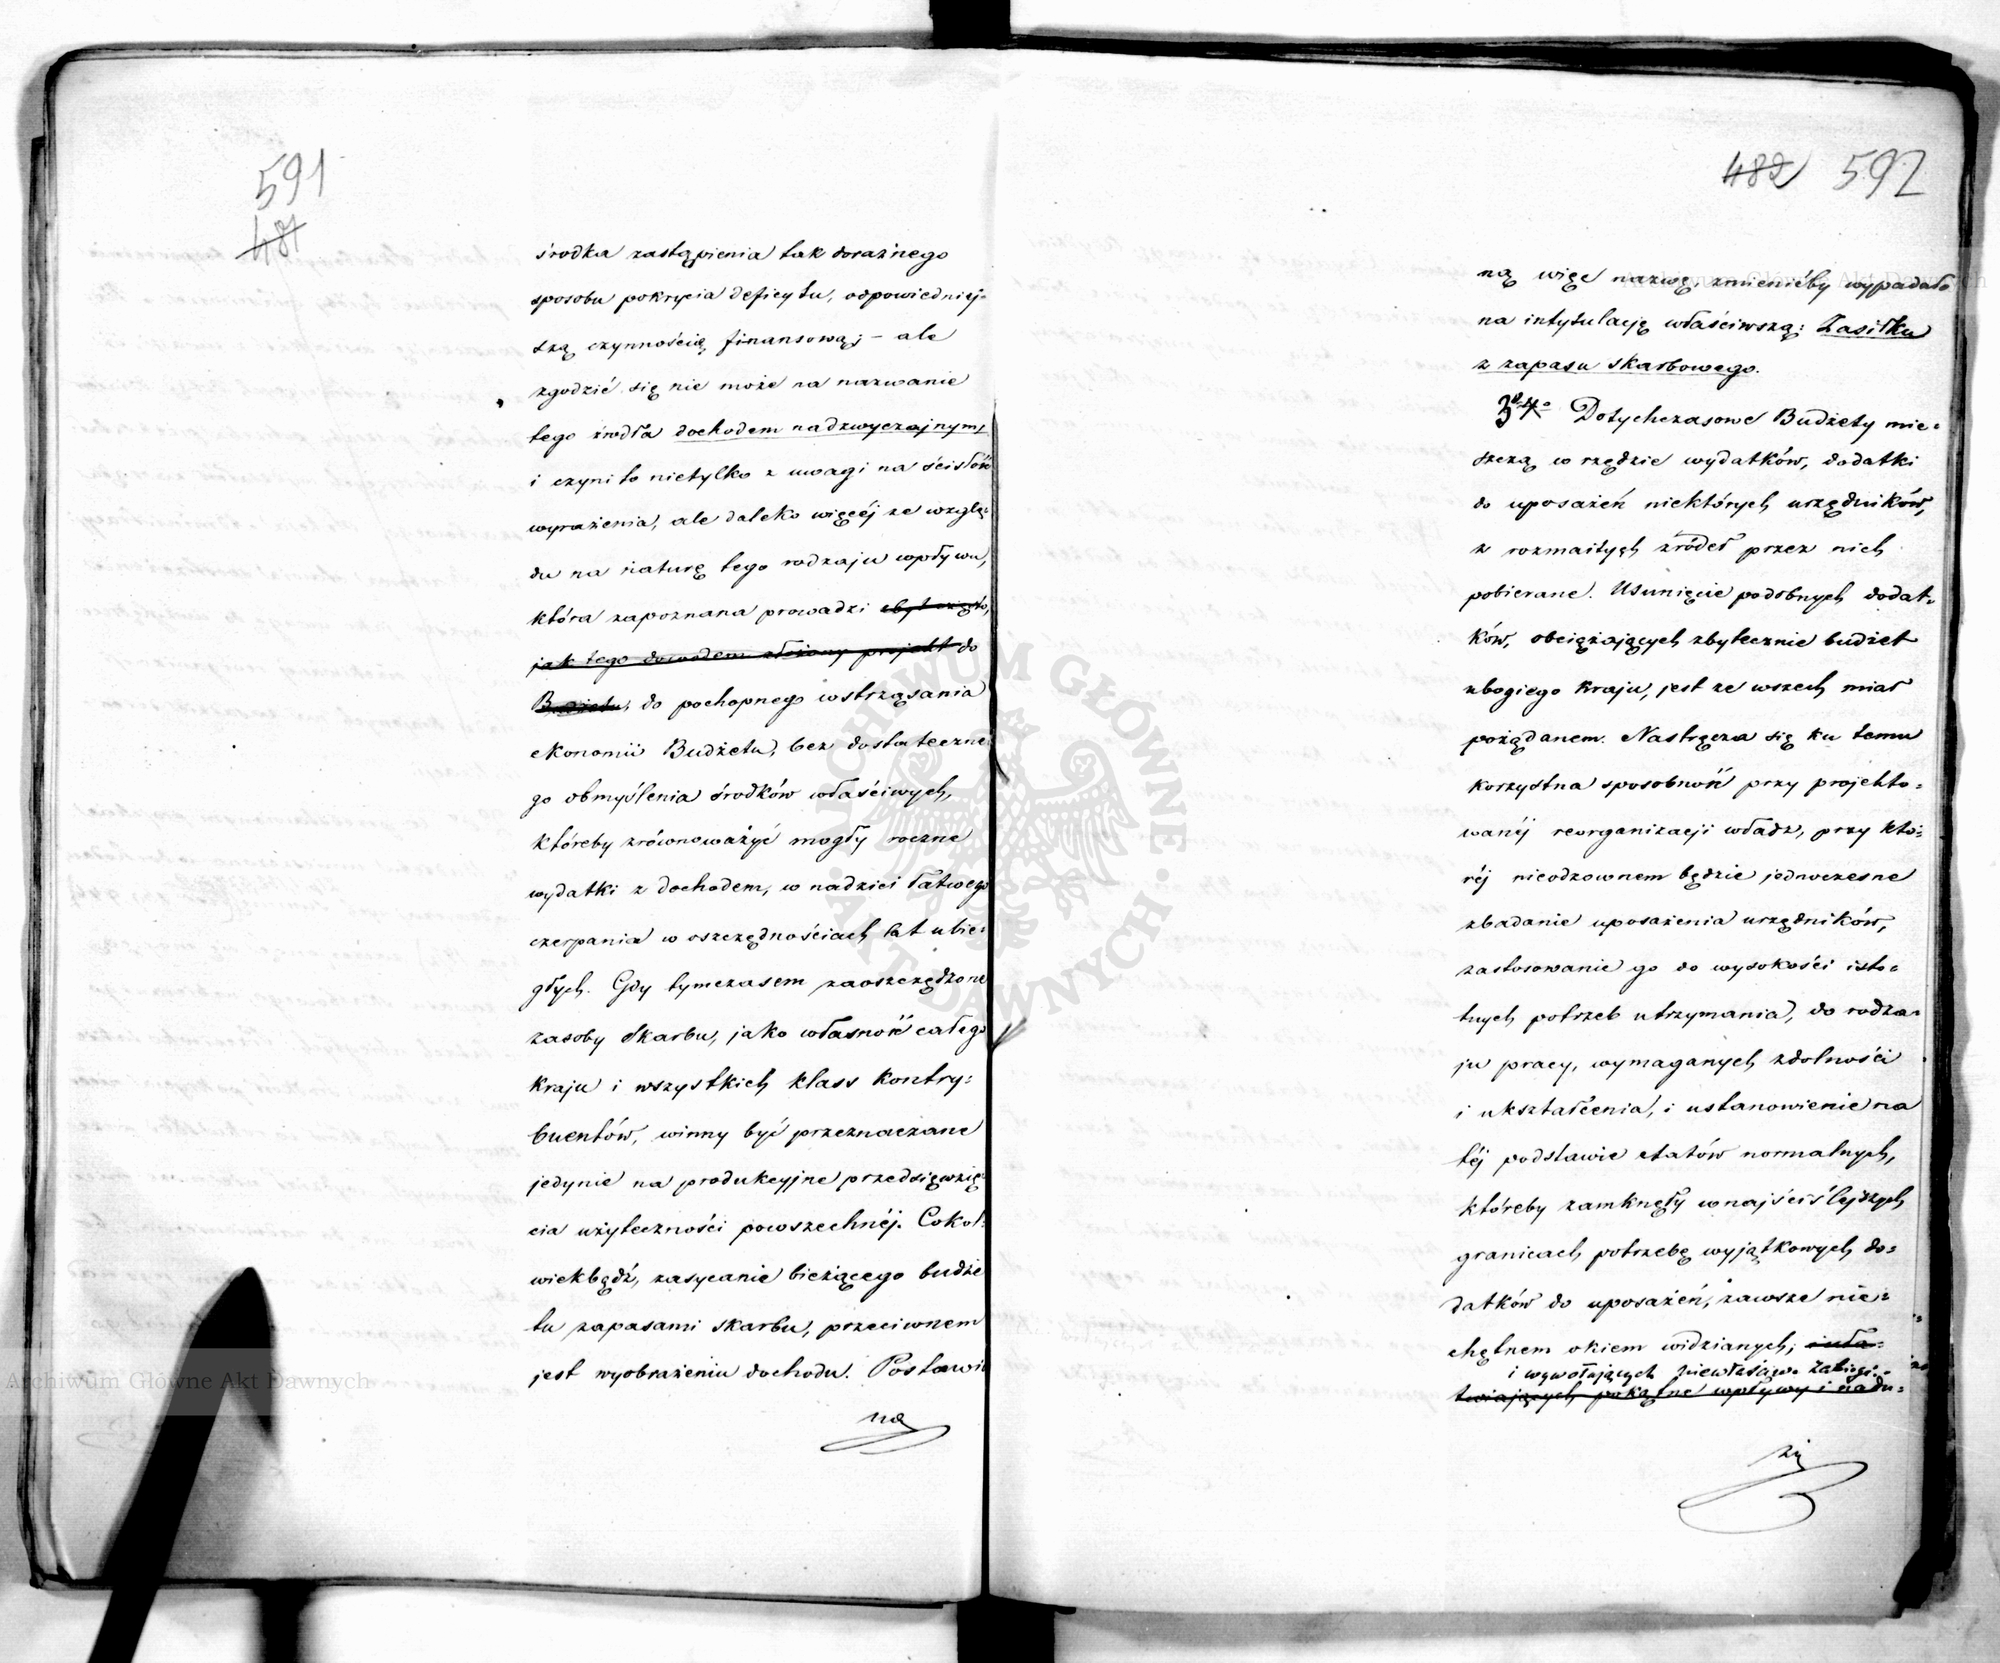 591
481
środka zastąpienia tak doraźnego
sposobu pokrycia deficytu, odpowiedniej-
szą czynnością finansową; – ale
zgodzić się nie może na nazwanie
tego źródła dochodem nadzwyczajnym,
i czyni to nietylko z uwagi na ścisłość
wyrażenia, ale daleko więcéj ze wzglę-
du na naturę tego rodzaju wpływu,
która zapoznana prowadzi zbyt często,
jak tego dowodem złożony projekt do
Budżetu, do pochopnego wstrząsania
ekonomii Budżetu, bez dostateczne-
go obmyślenia środków właściwych,
któreby zrównoważyć mogły roczne
wydatki z dochodem, w nadziei łatwego
czerpania w oszczędnościach lat ubie-
głych. Gdy tymczasem zaoszczędzone
zasoby Skarbu, jako własność całego
Kraju i wszystkich klass kontry-
buentów, winny być przeznaczane
jedynie na produkcyjne przedsięwzię-
cia użyteczności powszechnéj. Cokol-
wiekbądź, zasycanie bieżącego budże-
tu zapasami Skarbu, przeciwnem
jest wyobrażeniu dochodu. Postawio
ną
482 592
ną więc nazwę, zmienićby wypadało
na intytulacją właściwszą: Zasiłku
z zapasu Skarbowego.
Dotychczasowe Budżety mie-
szczą w rzędzie wydatków, dodatki
do uposażeń niektórych urzędników,
z rozmaitych źródeł przez nich
pobierane. Usunięcie podobnych dodat-
ków, obciążających zbytecznie budżet
ubogiego Kraju, jest ze wszech miar
pożądanem. Nastręcza się ku temu
korzystna sposobność przy projekto-
wanéj reorganizacji władz, przy któ-
réj nieodzownem będzie jednoczesne
zbadanie uposażenia urzędników,
zastosowanie go do wysokości isto-
tnych potrzeb utrzymania, do rodza-
ju pracy, wymaganych zdolności
i ukształcenia, i ustanowienie na
téj podstawie etatów normalnych,
któreby zamknęły w najściślejszych
granicach potrzebę wyjątkowych do-
datków do uposażeń, zawsze nie-
chętnem okiem widzianych; i uła-
i wywołujących niewłaściwe zabiegi.
twiających pokątne wpływy i nadu-
życ
Archiwum Główne Akt Dawnych
ARCHIWUM GŁÓWNE AKT DAWNYCH
Archiwum Główne Akt Dawnych